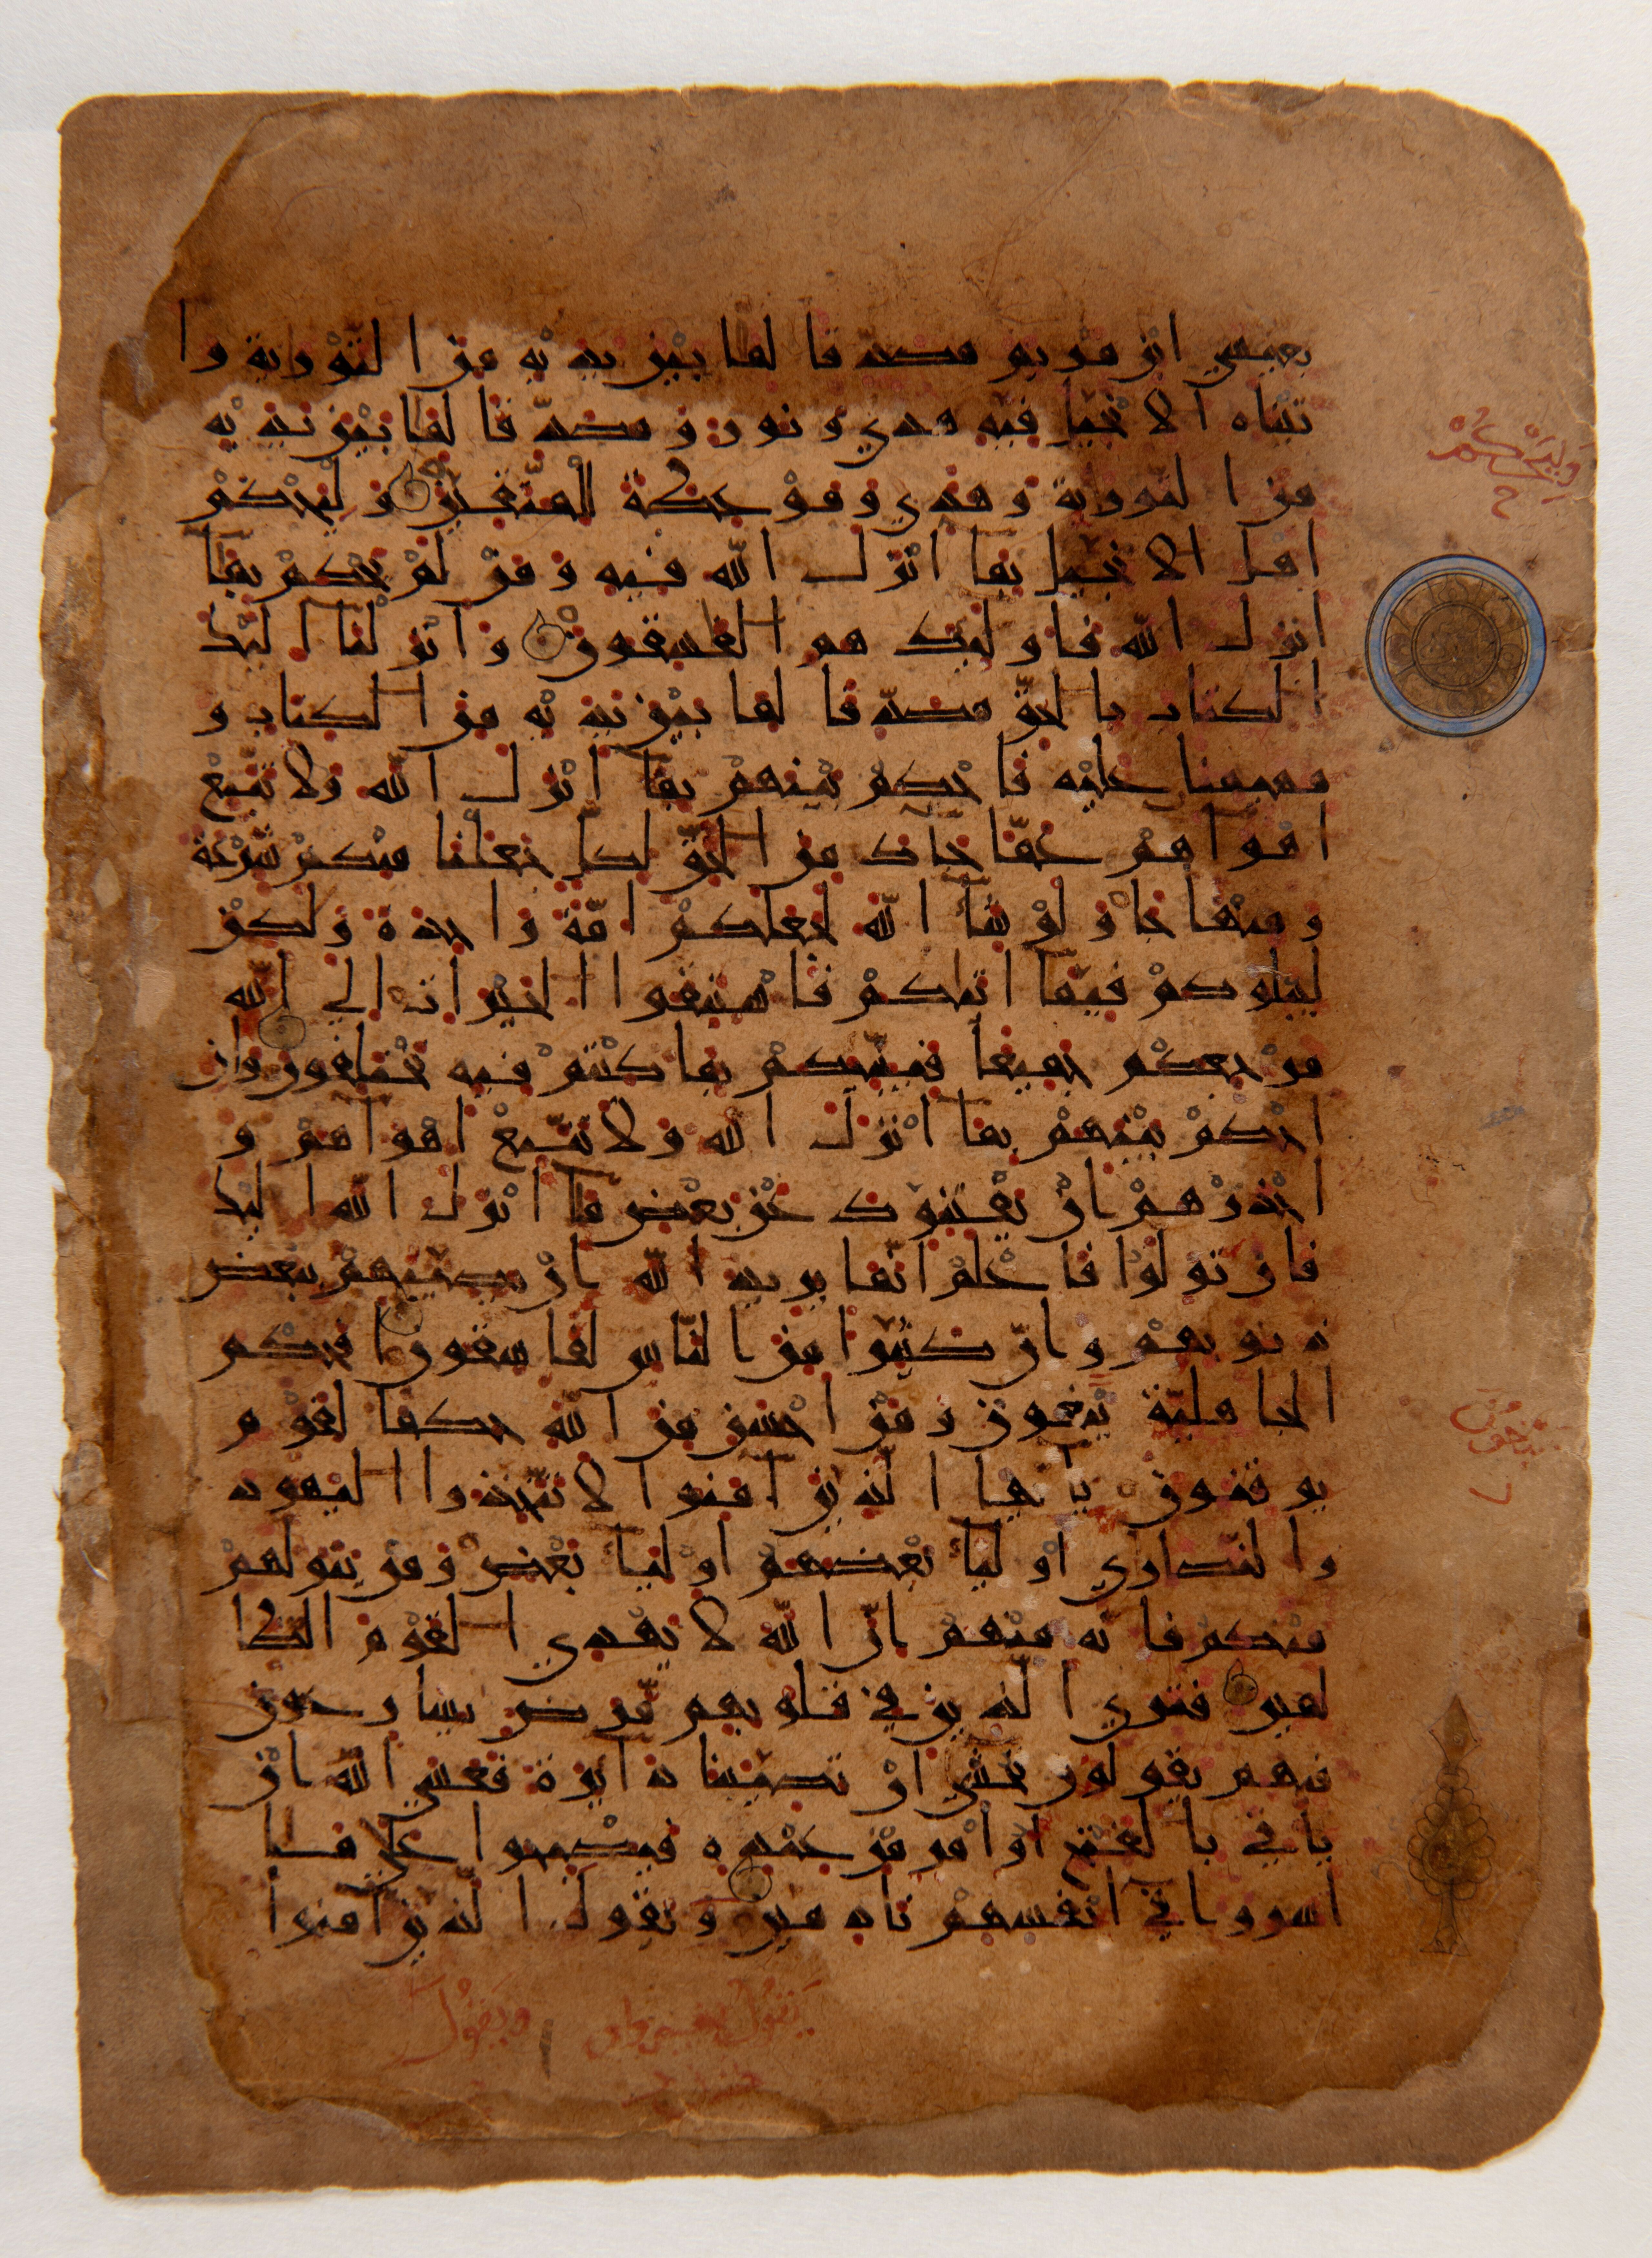 بعيسي ابن مريم مصدقا لما بين يديه من التورية وا
تيناه الانجيل فيه هدي ونور ومصدّقا لما بين يديه
من التورية وهدي وموعظة للمتّقين وليحكم
اهل الانجيل بما انزل الله فيه ومن لم يحكم بما
انزل الله فاوليك هم الفسقون وانزلنا اليك
الكتاب بالحقّ مصدّقا لما بين يديه من الكتاب و
مهيمنا عليه فاحكم بينهم بما انزل الله ولا تتّبع
اهواهم عمّا جاك من الحقّ لكل جعلنا منكم شرعة
ومنهاجا ولو شا الله لجعلكم امّة واحدة ولكن
ليبلوكم فيما اتيكم فاستبقوا الخيرات الي الله
مرجعكم جميعا فينبّيكم بما كنتم فيه تختلفون وان
احكم بينهم بما انزل الله ولا تتّبع اهواهم و
احذرهم ان يفتنوك عن بعض ما انزل الله اليك
فان تولوا فاعلم انّما يريد الله ان يصيبهم ببعض
ذنوبهم وانّ كثيرا من الناس لفاسقون افحكم
الجاهليّة يبغون ومن احسن من الله حكما لقوم
يوقنون ياايها الذين امنوا لا تتّخذوا اليهود
والنّصاري اوليا بعضهم اوليا بعض ومن يتولهم
منكم فانه منهم انّ الله لا يهدي القوم الظا
لمين فتري الذين في قلوبهم مّرض يسارعون
فيهم يقولون نخشي ان تصيبنا دايرة فعسي الله ان
ياتي بالفتح او امر من عنده فيصبحوا علي ما
اسروا في انفسهم نادمين ويقول الذين امنوا
وَلْيَحْكُمْ
يبغون
ويقول